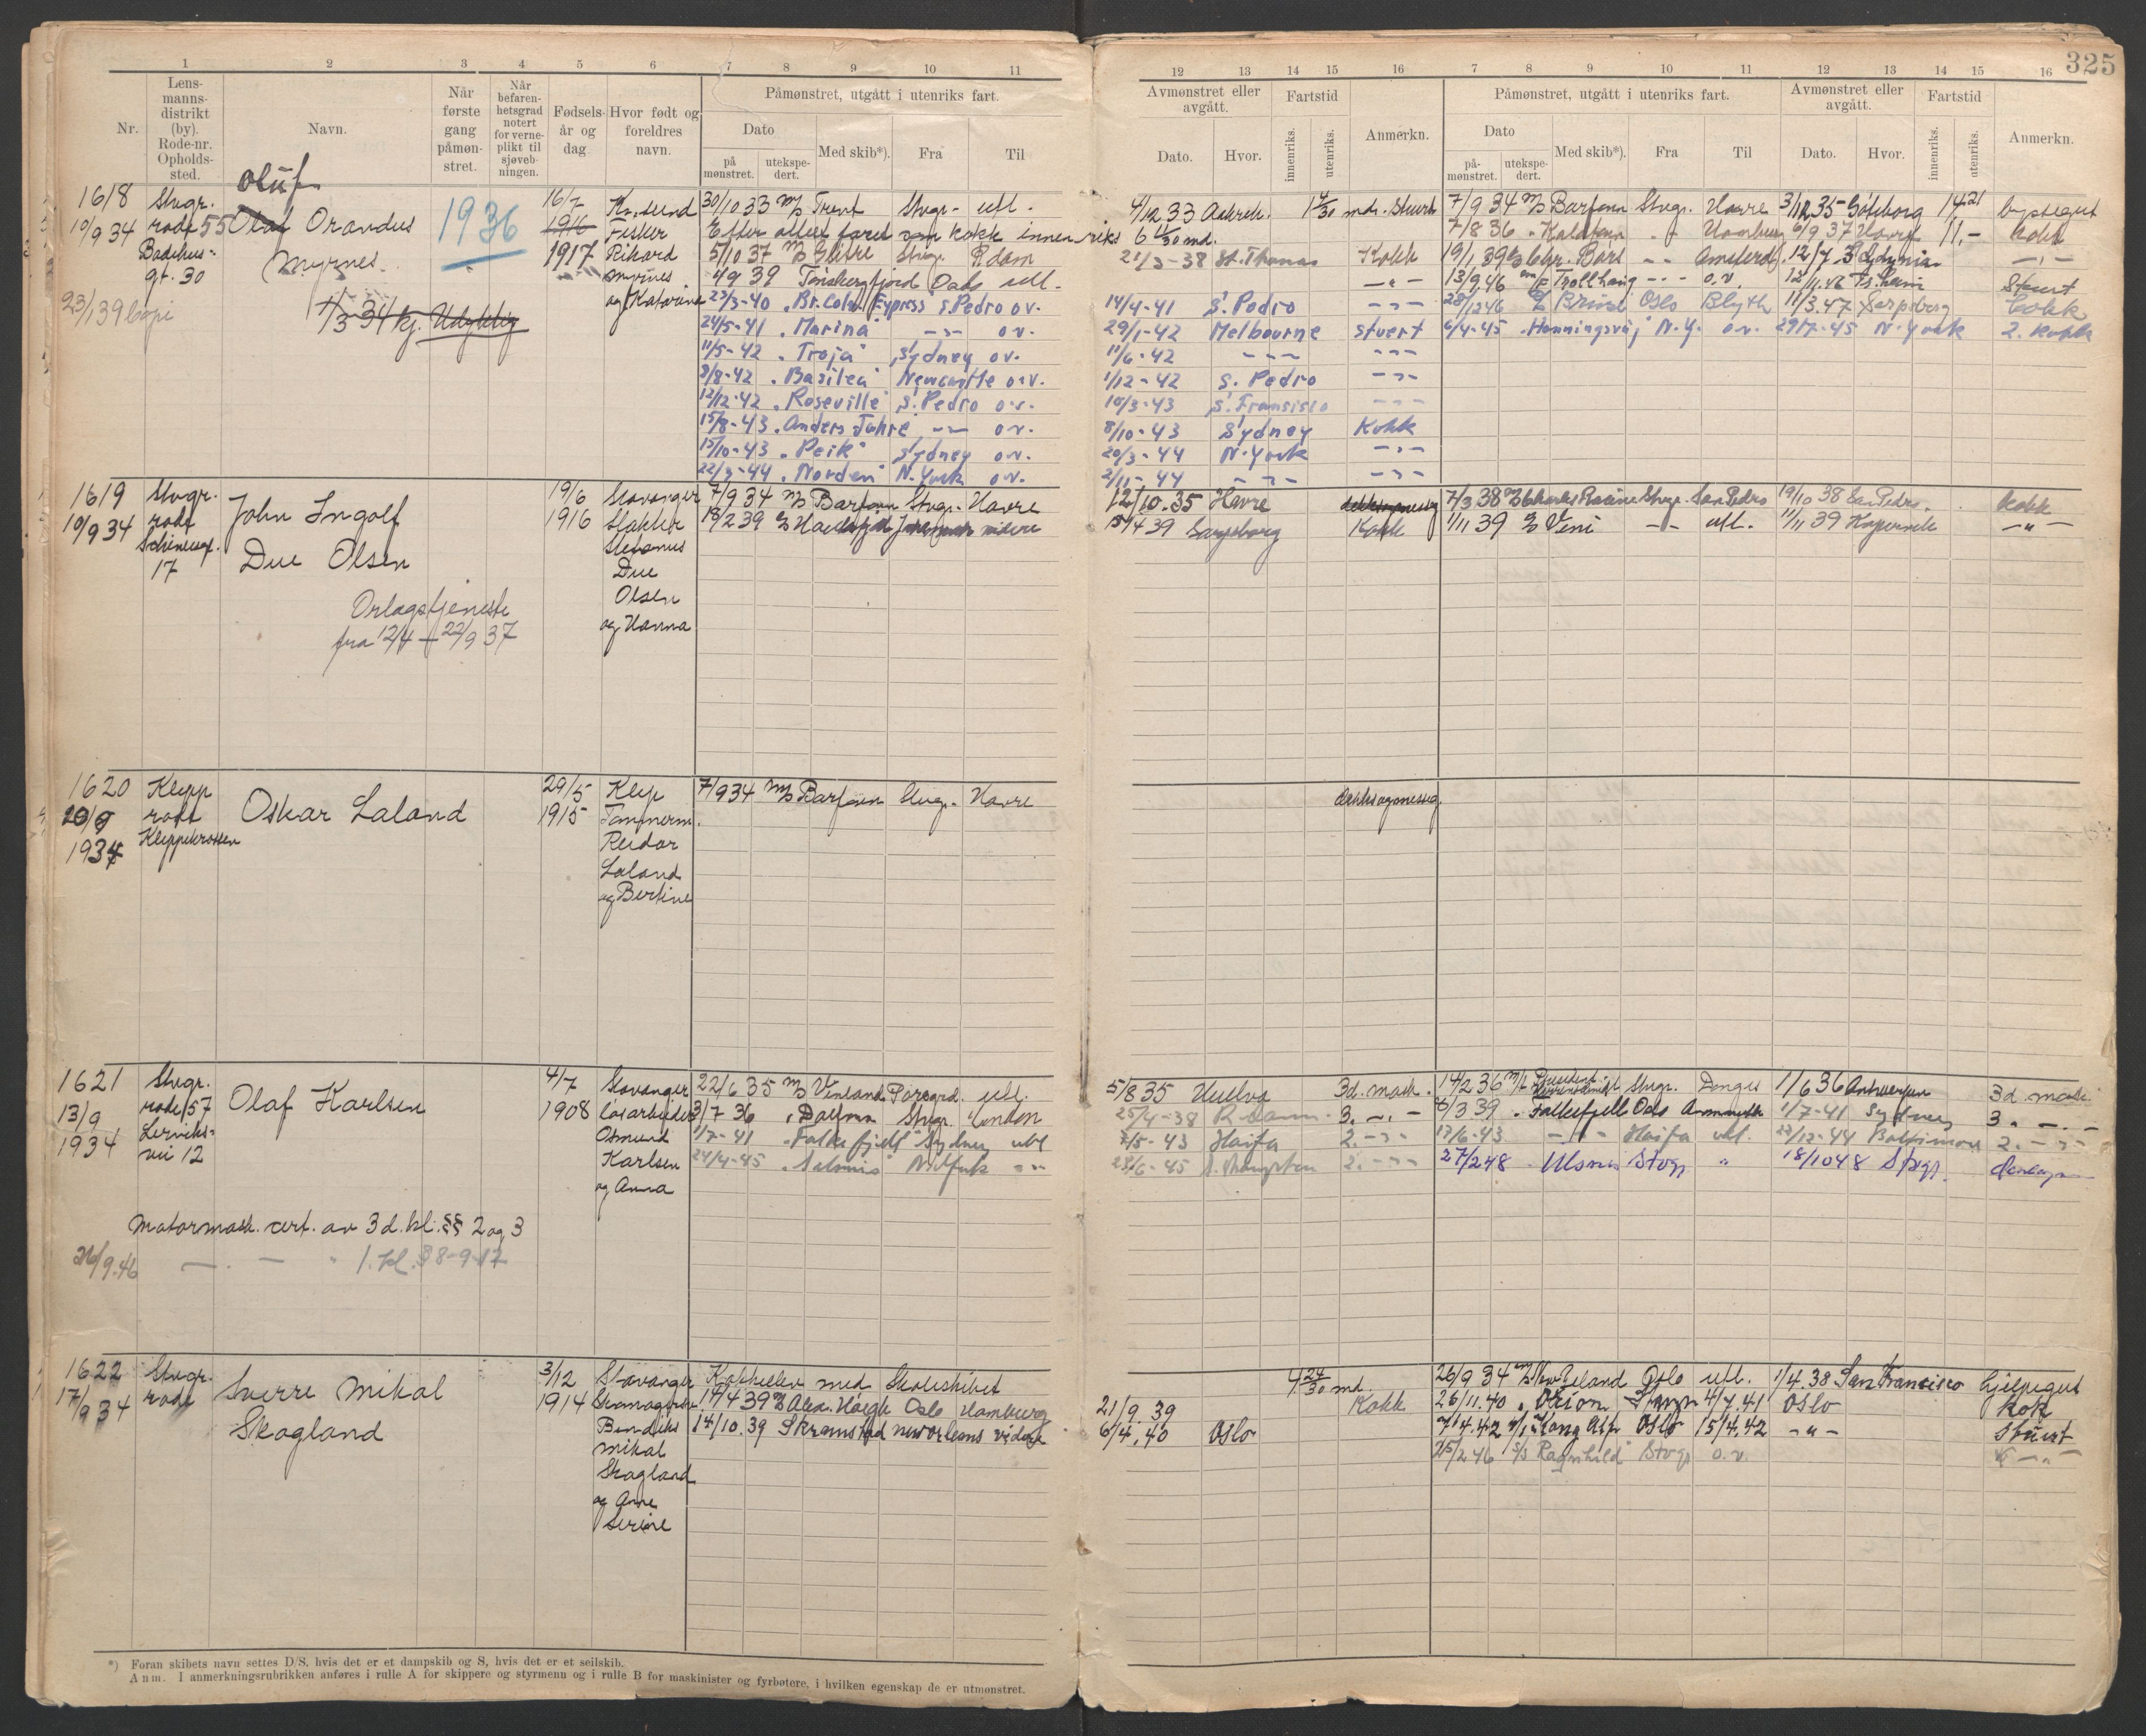 325
1 2 3 4 5 6 7 8 9 10 11
12 13 14 15 16 7 8 9 10 11 12 13 14 15 16
Nr.
Lens-
manns-
distrikt
(by).
Rode-nr.
Opholds-
sted.
Navn.
Når
første
gang
påmøn-
stret.
Når
befaren-
hetsgrad
notert
for verne-
plikt til
sjøveb-
ningen.
Fødsels-
år og
dag
Hvor født og
foreldres
navn.
Påmønstret, utgått i utenriks fart.
Dato
på
mønstret.
utekspe-
dert.
Med skib*).
Fra
Til
Avmønstret eller
avgått.
Dato.
Hvor.
Fartstid
innenriks.
utenriks.
Anmerkn.
Påmønstret, utgått i utenriks fart.
Dato
på-
mønstret.
utekspe-
dert.
Med skib*).
Fra
Til
Avmønstret eller
avgått.
Dato.
Hvor.
Fartstid
innenriks.
utenriks.
Anmerkn.
1618
10/9 34
23/1 39 kopi
Stvgr.
rode 55
Badehus-
gt. 30
Oluf
Olaf Orandus
Myrnes
1/3 34 kj. Udyktig
1936
16/7
1916
1917
Kr.sund
Fisker
Rikard
Myrnes
og Katarina
30/10 33 M/S Trent Stvgr. - utl.
Efter attest faret som kokk innenriks 6 11/30 md.
5/10 37 M/S Glitre Stvgr. R.dam
4 9 39 Tønsbergfjord Oslo utl.
23/3-40 "Br. Colu. Express" S. Pedro o.v.
24/5-41 "Marina" -"- o.v.
11/5-42 "Troja" Sydney o.v.
8/8-42 "Basilea" Newcastle o.v.
12/12-42 "Roseville" S. Pedro o.v.
15/8-43 "Anders Jahre" -"- o.v.
15/10-43 "Peik" Sydney o.v.
22/3-44 "Norden" N. York o.v.
4/12 33 Aakreh. 1 4/30 md. Stuert
21/3-38 St. Thomas Kokk
-"-
14/4-41 S. Pedro -"-
29/1-42 Melbourne stuert
11/6-42 -"- -"-
1/12-42 S. Pedro -"-
10/3-43 S. Fransisco -"-
8/10-43 Sydney Kokk
20/3-44 N. York -"-
2/11-44 -"- -"-
7/9 34 M/S Barfonn Stvgr. Havre 3/12 35 Göteborg 14 21 byssegut
7/8 36 " Kaldfonn " - " Hamburg 6/9 37 Havre 11,- kokk
19/1 39 Chr. Bors -"- Amsterd. 12/7 3 Gdynia -"-
13/9.46 Trollhaug -"- o.v. 12/11.46 Stuert
28/12 46 Bruse Oslo Blyth 11/3.47 Sarpsborg Kokk
6/4-45 "Honningsvåg" N.Y. o.v. 29/7-45 N. York 2. kokk
1619
10/9 34
Stvgr.
rode
17
John Ingolf
Due Olsen
Orlogstjeneste
fra 12/4 - 22/9 37
19/6
1916
Stavanger
Slakter
Stefanus
Due
Olsen
og Hanna
7/9 34 M/S Barfonn Stvgr. Havre
18/2 39
12/10.35 Havre dekksgutt
15/4 39 Sarpsborg Kokk
7/3 38 M/S Charles Racine Stvgr. San Pedro 19/10 38 San Pedro. Kokk
1/11 39 Veni -"- utl. 11/11 39 Kopervik -"-
1620
20/9
1934
Klepp
rode
Kleppekrossen
Oskar Laland
29/5
1915
Klep
Tømmerm.
Reidar
Laland
og Bertine
7/9 34 M/S Barfonn Stvgr. Havre
1621
13/9
1934
Stvgr.
rode 157
Lerviks-
vei 12
Olaf Karlsen
4/7
1908
Stavanger
Løsarbeider
Osmund
Karlsen
og Anna
Motormask. cert. av 3 d. kl. §§ 2 og 3
26/9.46 -"- 1. kl. § 8-9-12
22/6 35 M/S Vinland Porsgrd. utl.
3/7 36 " Dalfonn Stvgr. London
1/7-41 "Falkefjell" Sydney utl
24/4-45 "Salamis" Norfolk -"-
5/8 35 Huelva 3d. mask.
25/4-38 R.dam 3. -"-
7/5-43 Haifa 2. -"-
2. -"-
14/2 36 M/S Stvgr. 1/6 36 Antwerpen 3d. mask.
4/3 39 " Falkefjell Oslo 1/7-41 Sydney 3. -"-
17/6-43 -"- Haifa utl. 22/12-44 Baltimore 2. -"-
27/2 48 " Ulsnes Stvgr " 18/10 48 Stvgr.
1622
17/9 34
Stvgr.
rode
Sverre Mikal
Skogland
3/12
1914
Stavanger
Bendiks
Mikal
Skogland
og Anne
Serine
Kokkelev med Skoleskibet
14/4 39 Alex. Haugh Oslo Hamburg
14/10.39 Skramstad New Orleans videre
4 24/30 md.
21/9.39 Kokk
6/4.40 Oslo
26/9 34 M/S Oslo utl. 1/4.38 San Francisco hjelpegut
26/11.40 " Orion 4/7.41 Oslo kok
7/4.42 Kong Alf Oslo 15/4.42 -"- Stuert
25/2.46 S/S Ragnhild Stvgr o.v. -"-
*) Foran skibets navn settes D/S, hvis det er et dampskib og S, hvis det er et seilskib.
Anm. I anmerkningsrubrikken anføres i rulle A for skippere og styrmenn og i rulle B for maskinister og fyrbøtere, i hvilken egenskap de er utmønstret.